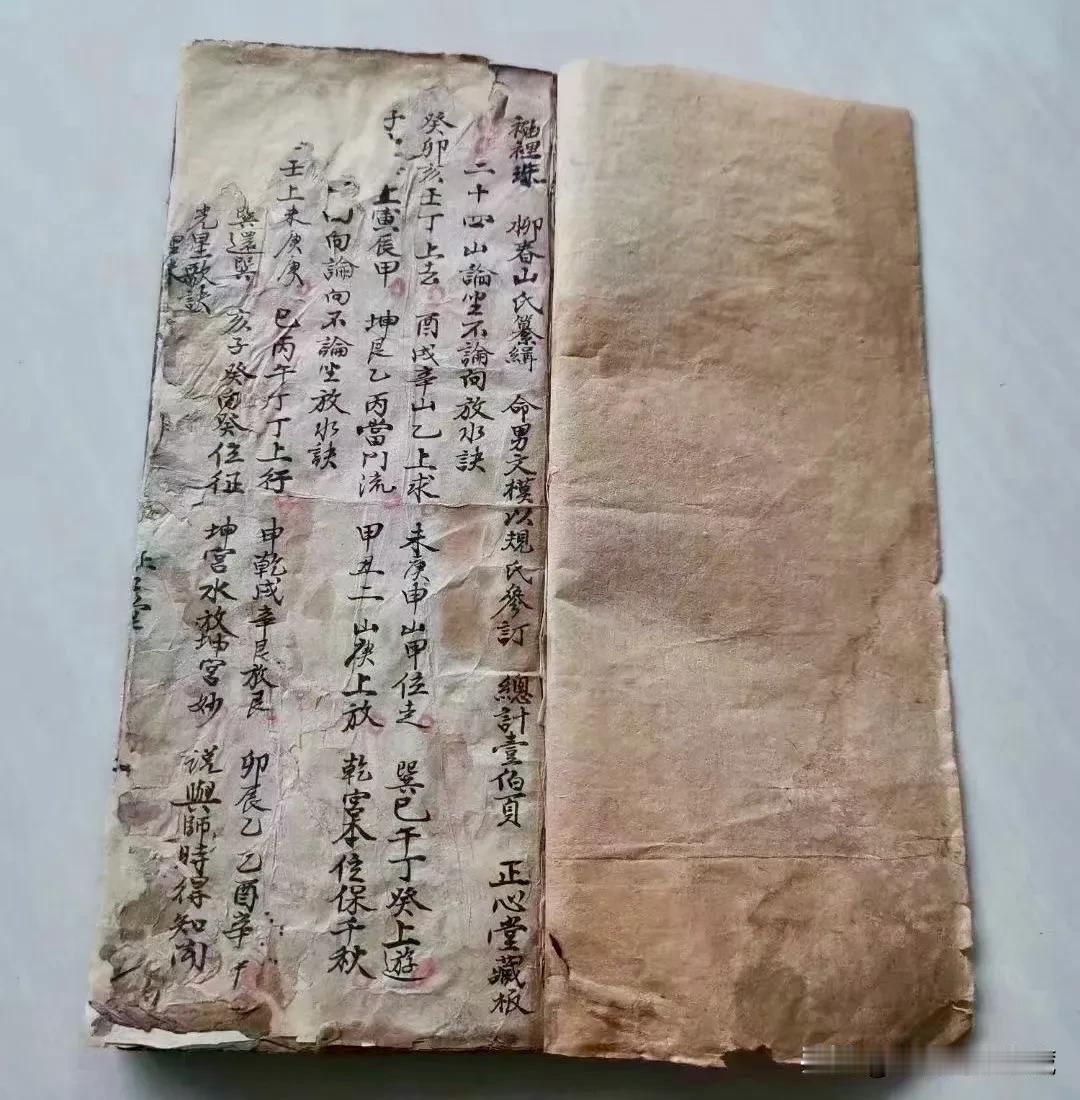 袖裡珠 柳春山氏纂緝 命男文模以規氏參訂 總計壹伯頁 正心堂藏板
二十四山論坐不論向放水訣
癸卯亥壬丁上去 酉戌辛山乙上求 未庚申山甲位走 巽巳午丁癸上遊
子 上寅辰甲 坤艮乙丙當門流 甲丑二山庚上放 乾宮本位保千秋
山向論向不論坐放水訣
壬上未庚庚 巳丙午行丁上行 申乾戌辛艮放艮 卯辰乙乙酉辛
巽還巽 亥子癸 癸位征 坤宮水放坤宮妙 說與師時得知
星歌訣